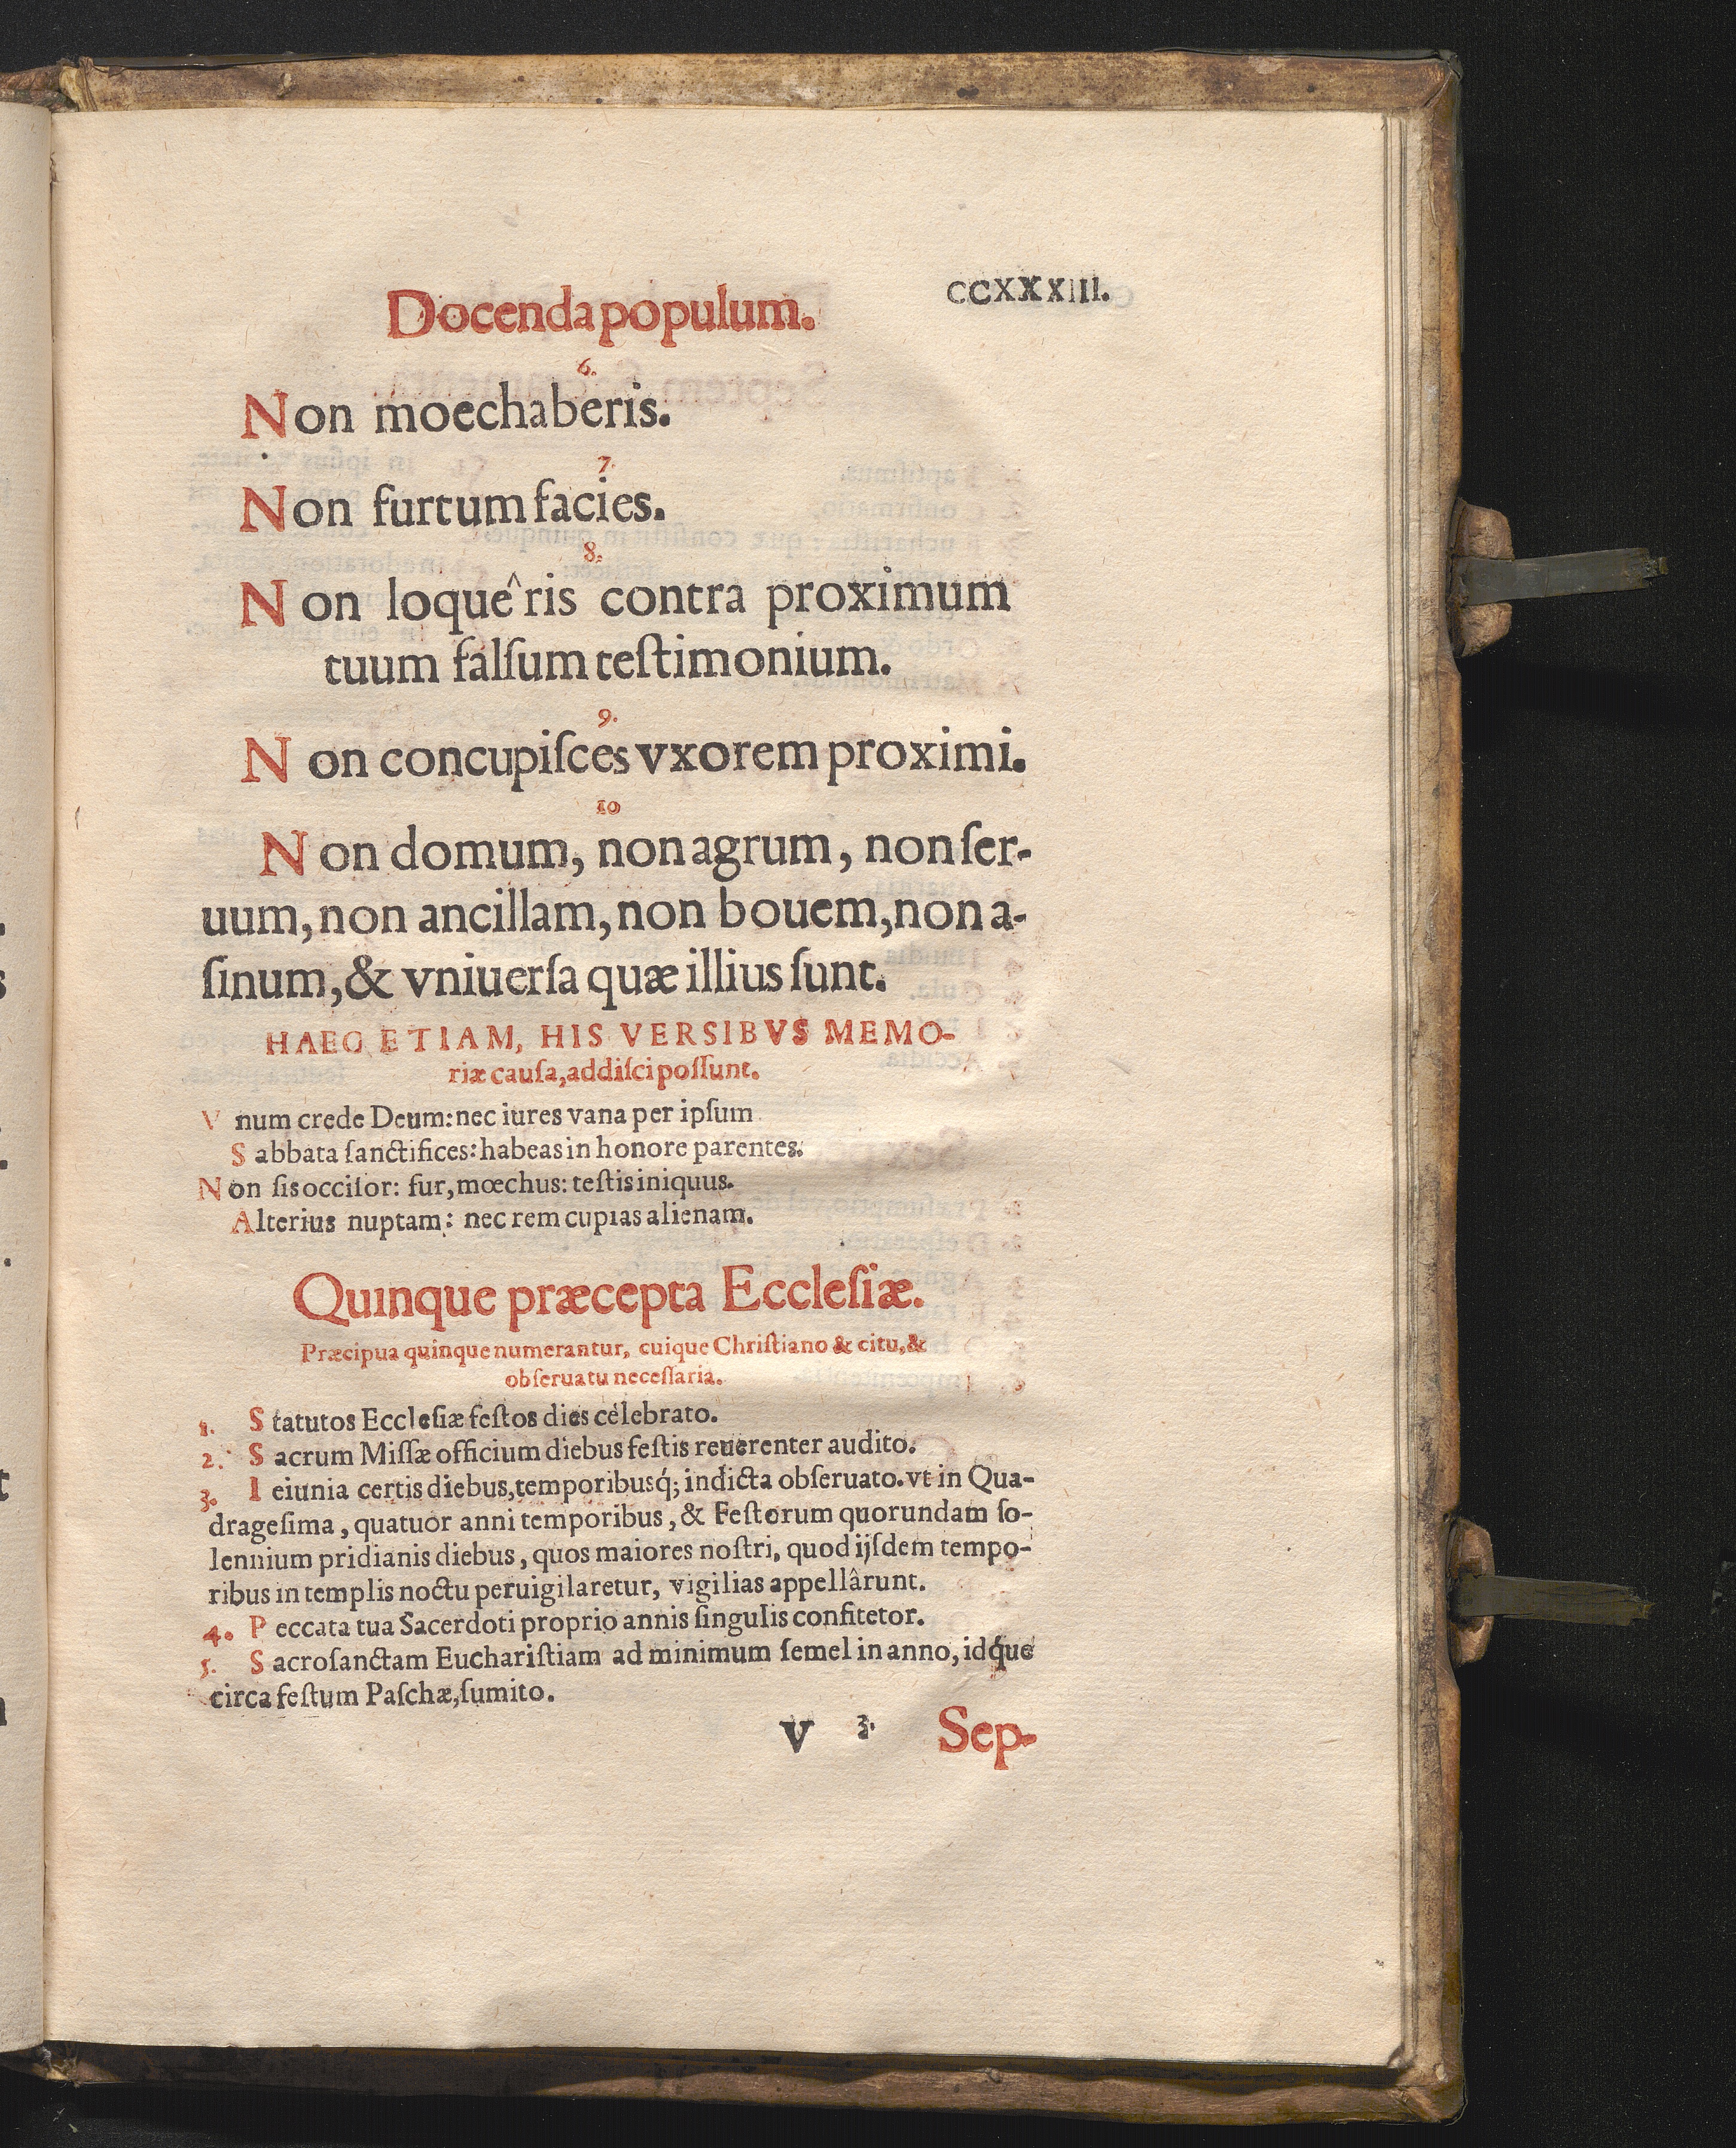 Docenda populum.
CCXXXIII.
6.
Non moechaberis.
7.
Non furtum facies.
8.
Non loquêris contra proximum
tuum falſum teſtimonium.
9.
Non concupiſces vxorem proximi.
10
Non domum, non agrum, non ſer-
uum, non ancillam, non bouem, non a-
ſinum, & vniuerſa quæ illius ſunt.
HAEC ETIAM, HIS VERSIBVS MEMO-
riæ cauſa, addiſci poſſunt.
Vnum crede Deum: nec iures vana per ipſum
Sabbata ſanctifices: habeas in honore parentes.
Non ſis occiſor: fur, mœchus: teſtis iniquus.
Alterius nuptam: nec rem cupias alienam.
Quinque præcepta Eccleſiæ.
Præcipua quinque numerantur, cuique Chriſtiano & citu, &
obſeruatu neceſſaria.
1. Statutos Eccleſiæ feſtos dies celebrato.
2. Sacrum Miſſæ officium diebus feſtis reuerenter audito.
3. Ieiunia certis diebus, temporibusq́; indicta obſeruato. vt in Qua-
drageſima, quatuor anni temporibus, & Feſtorum quorundam ſo-
lennium pridianis diebus, quos maiores noſtri, quod ijſdem tempo-
ribus in templis noctu peruigilaretur, vigilias appellârunt.
4. Peccata tua Sacerdoti proprio annis ſingulis confitetor.
5. Sacroſanctam Euchariſtiam ad minimum ſemel in anno, idq́ue
circa feſtum Paſchæ, ſumito.
V 3. Sep-